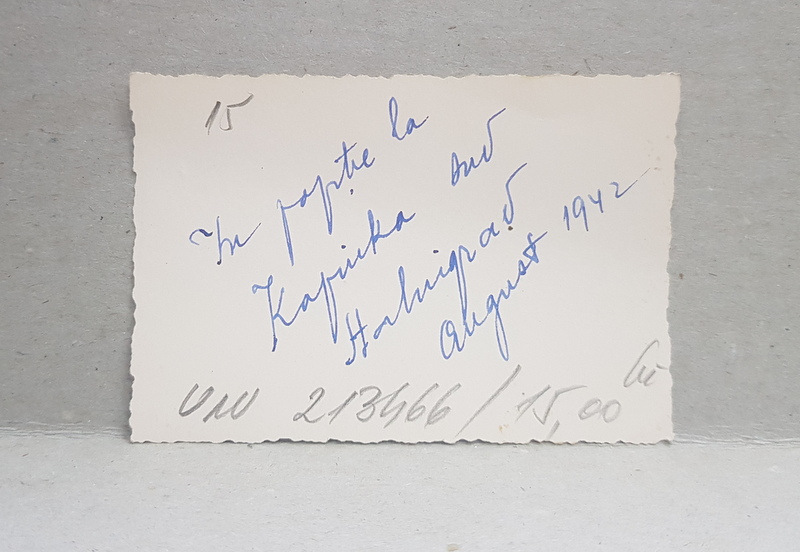 15
În noapte la
Kapinka sud
Stalingrad
August 1942
UNU 213466 / 15,00 lei